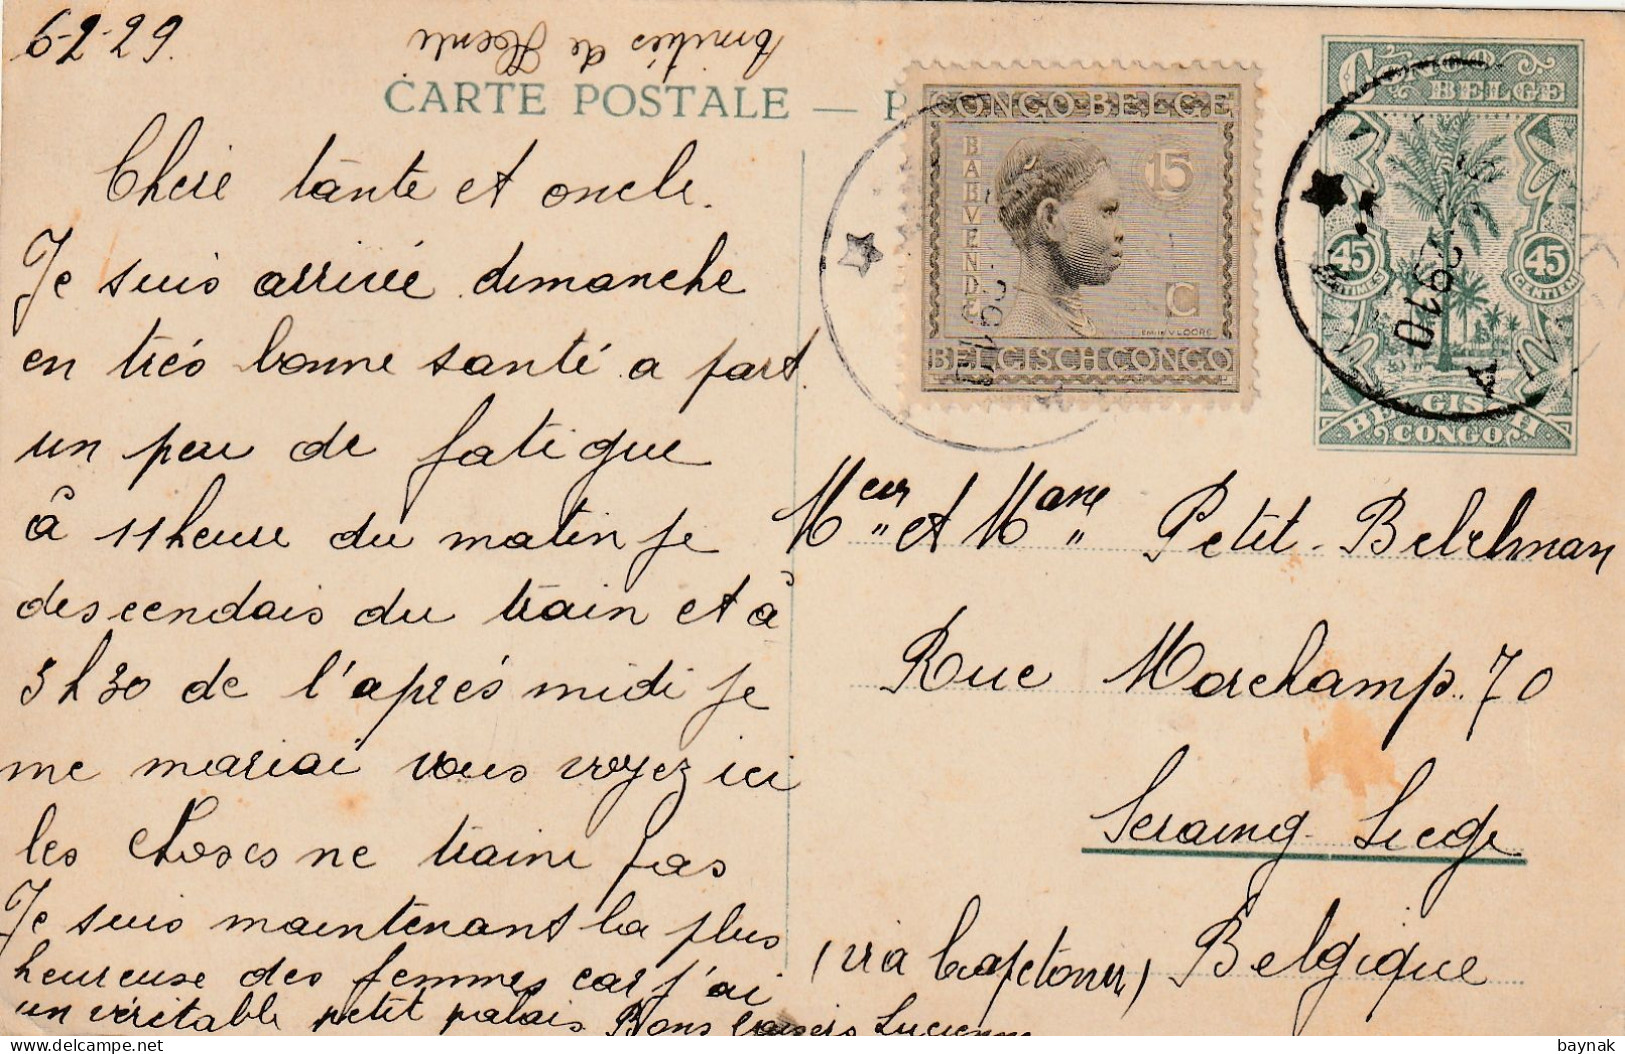 6-2-29.
Amitiés de
CARTE POSTALE —
Chère tante et oncle.
Je suis arrivée dimanche
en trés bonne santé a part
un peu de fatigue
à 11 heure du matin je
descendais du train et à
3 h 30 de l'aprés midi je
me mariai vous voyez ici
les choses ne traine pas
Je suis maintenant la plus
heureuse des femmes car j'ai
un véritable petit palais Bons baisers Lucienne
CONGO BELGE
BABVENDE
15
C
BELGISCH CONGO
CONGO
BELGE
45
CENTIMES
45
CENTIEM
BELGISCH
CONGO
Meur et Mame Petit-Belelman
Rue Morchamp. 70
Seraing-Liege
(via Capetown) Belgique
baynak